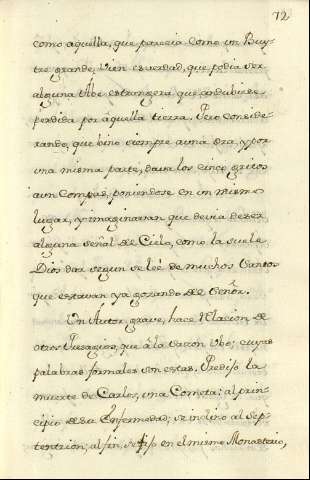 72
como aquella, que parecia como un Buy-
tre grande, vien es verdad, que podia ser
alguna Ábe estrangera que andubiese
perdida por aquella tierra. Pero conside-
rando, que bino siempre a una ora, y por
una misma parte, dava los cinco gritos
a un Compas, poniendose en un mismo
lugar, y imaginaran que devia de ser
alguna señal de Cielo, como la suele
Dios dar segun se leé de muchos Santos
que estavan ya gozando del Señor.
Un Autor grave, hace Relacion de
otros Presagios, que â la saçon Vbo; cuyas
palabras formales son estas. Predijo la
muerte de Carlos, una Cometa: al prin-
cipio de su Enfermedad; se inclinó al Sep-
tentrion; al fin, se fijo en el mismo Monasterio,